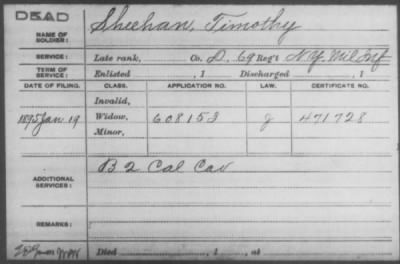 DEAD
NAME OF SOLDIER: Sheehan, Timothy
SERVICE: Late rank, Co. D, 69 Reg't N.Y. Mil Inf
TERM OF SERVICE: Enlisted , 1 Discharged , 1
DATE OF FILING. CLASS. APPLICATION NO. LAW. CERTIFICATE NO.
Invalid,
1895 Jan. 19 Widow, 608153 g 471728
Minor,
ADDITIONAL SERVICES: B 2 Cal Cav
REMARKS:
Died , 1 , at